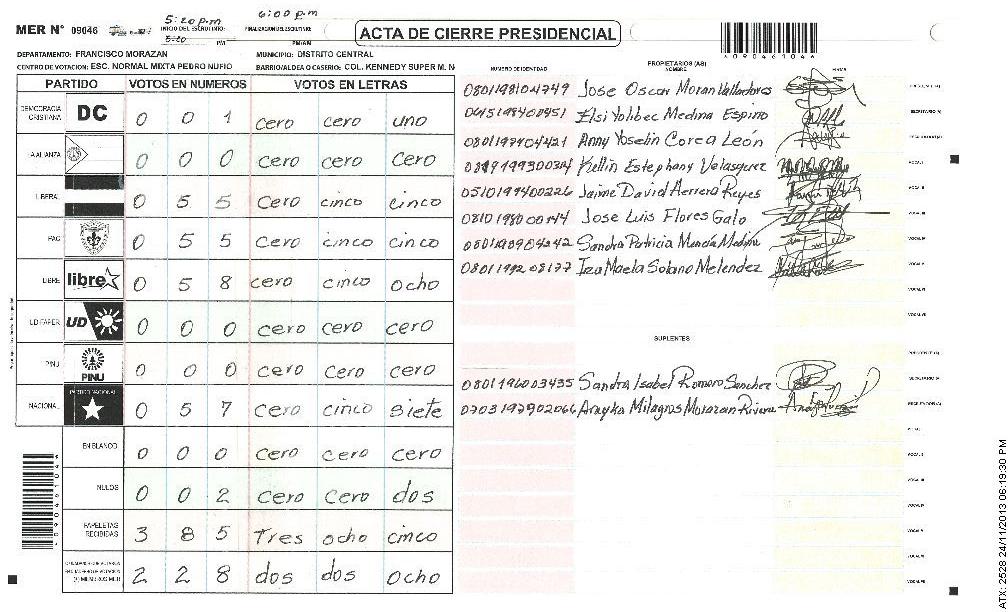 MER N° 09046
5:20 p.m
INICIO DEL ESCRUTINIO:
5:20 PM
6:00 p.m
FINALIZACION DEL ESCRUTINIO:
PM/AM
ACTA DE CIERRE PRESIDENCIAL
*090461046*
DEPARTAMENTO: FRANCISCO MORAZAN
MUNICIPIO: DISTRITO CENTRAL
CENTRO DE VOTACION: ESC. NORMAL MIXTA PEDRO NUFIO
BARRIO/ALDEA O CASERIO: COL. KENNEDY SUPER M. N
PARTIDO VOTOS EN NUMEROS VOTOS EN LETRAS
DEMOCRACIA CRISTIANA DC 0 0 1 cero cero uno
LA ALIANZA 0 0 0 cero cero cero
LIBERAL 0 5 5 cero cinco cinco
PAC 0 5 5 cero cinco cinco
LIBRE libre 0 5 8 cero cinco ocho
UD FAPER UD 0 0 0 cero cero cero
PINU PINU 0 0 0 cero cero cero
NACIONAL PARTIDO NACIONAL 0 5 7 cero cinco siete
EN BLANCO 0 0 0 cero cero cero
NULOS 0 0 2 cero cero dos
PAPELETAS RECIBIDAS 3 8 5 Tres ocho cinco
(+) MIEMBROS MER 2 2 8 dos dos ocho
NUMERO DE IDENTIDAD
PROPIETARIOS (AS)
NOMBRE
FIRMA
0801198104749 Jose Oscar Moran Valladares
Elsi Yolibec Medina Espino
0801197404421 Anny Yoselin Correa León
Kellin Estephany Velasquez
0510199400226 Jaime David Herrera Reyes
Jose Luis Flores Galo
Sandra Patricia Mencía Medina
0801199208177 Iza Maela Solano Melendez
SUPLENTES
0801196003435 Sandra Isabel Romero Sanchez
0703197902066 Anayka Milagros Morazan Rivera
ATX: 2528 24/11/2013 06:19:30 PM